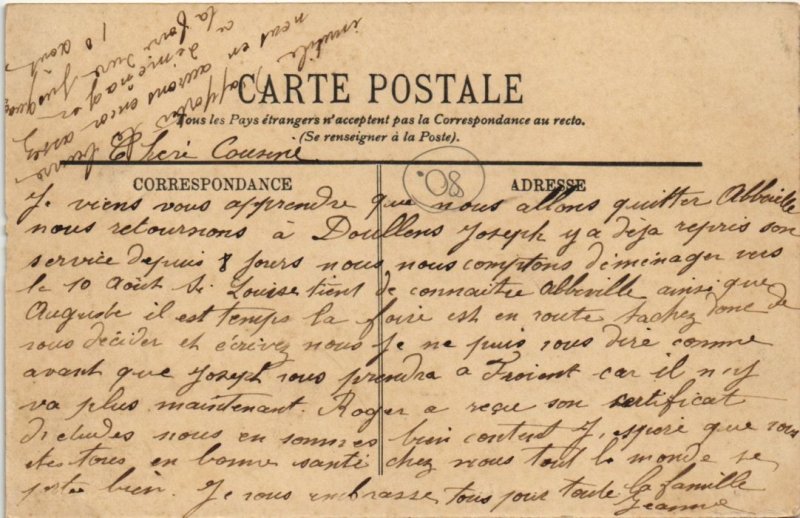 CARTE POSTALE
Tous les Pays étrangers n'acceptent pas la Correspondance au recto.
(Se renseigner à la Poste).
Cheri Cousine
CORRESPONDANCE
ADRESSE
80
Je viens vous apprendre que nous allons quitter Abbeville
nous retournons à Doullens Joseph y a déja repris son
service depuis 8 jours nous nous comptons déménager vers
le 10 Août Si Louise tient de connaitre Abbeville ainsi que
Auguste il est temps la foire est en route tachez donc de
vous décider et écrivez nous Je ne puis vous dire comme
avant que Joseph vous prendra a Froient car il n'y
va plus maintenant. Roger a reçue son certificat
d'etudes nous en sommes bien content J'espore que vous
etes tous en bonne santé chez nous tout le monde se
porte bien. Je vous embrasse tous pour toute la famille
Jeanne
inutile d'apporter
nous en aurons encor assez
a déménager
la foire dure jusque
10 août